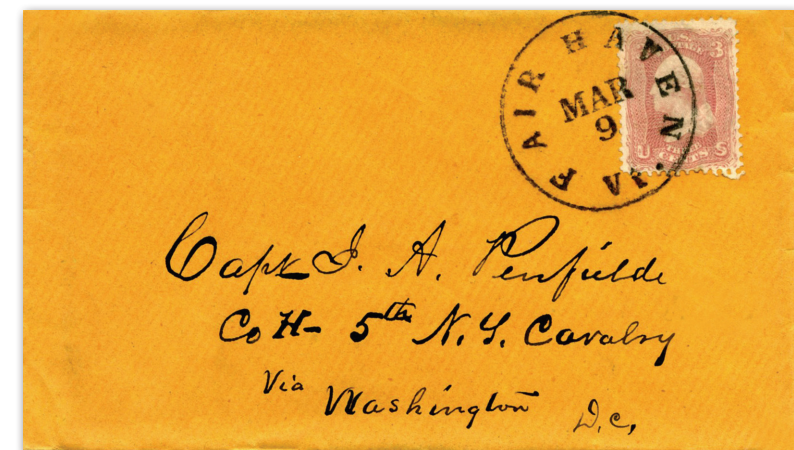 FAIR HAVEN. VT
MAR
9
3
U S
CENTS
Capt J. A. Penfielde
Co H- 5th N.Y. Cavalry
Via Washington D.C.